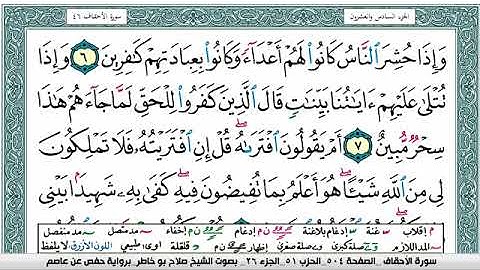 الجزء السادس والعشرون
سورة الأحقاف ٤٦
وَإِذَا حُشِرَ ٱلنَّاسُ كَانُوا۟ لَهُمْ أَعْدَآءً وَكَانُوا۟ بِعِبَادَتِهِمْ كَٰفِرِينَ ٦ وَإِذَا
تُتْلَىٰ عَلَيْهِمْ ءَايَٰتُنَا بَيِّنَٰتٍ قَالَ ٱلَّذِينَ كَفَرُوا۟ لِلْحَقِّ لَمَّا جَآءَهُمْ هَٰذَا
سِحْرٌ مُّبِينٌ ٧ أَمْ يَقُولُونَ ٱفْتَرَىٰهُ قُلْ إِنِ ٱفْتَرَيْتُهُۥ فَلَا تَمْلِكُونَ
لِى مِنَ ٱللَّهِ شَيْـًٔا هُوَ أَعْلَمُ بِمَا تُفِيضُونَ فِيهِ كَفَىٰ بِهِۦ شَهِيدًۢا بَيْنِى
م إقلاب غنة إدغام بلاغنة ن م إدغام إخفاء مد متصل مد منفصل
المد اللازم صلة كبرى صلة صغرى إظهار ن م قلقلة ا و ى طبيعي اللون الأزرق لا يلفظ
سورة الأحقاف _ الصفحة ٥٠٤ _ الحزب ٥١ _ الجزء ٢٦ _ بصوت الشيخ صلاح بو خاطر _ برواية حفص عن عاصم